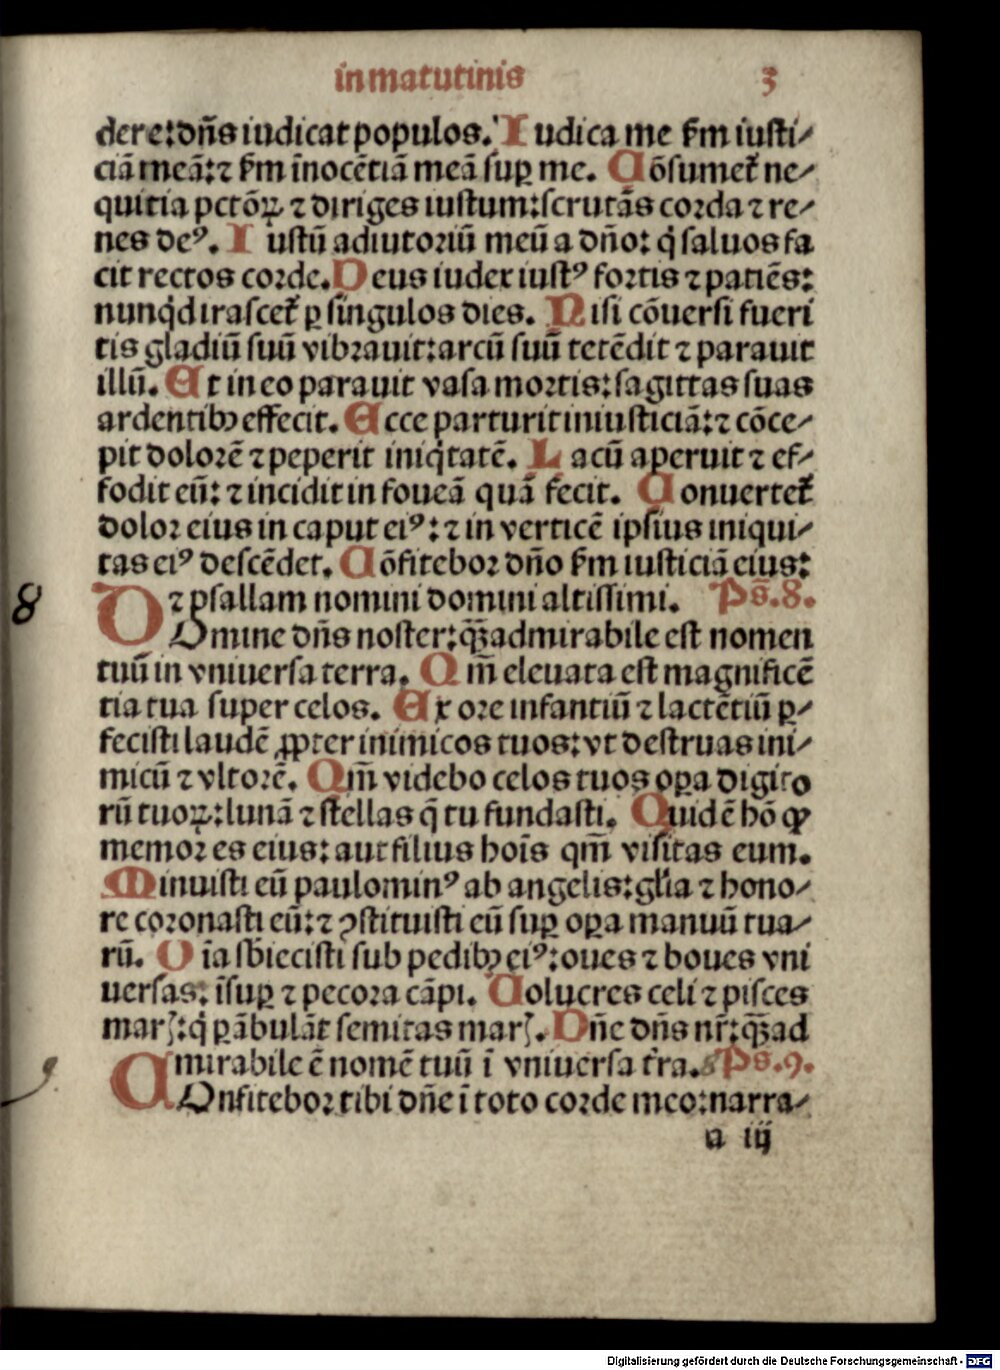 in matutinis 3
dere: dn̄s iudicat populos. Iudica me km̄ iusti⸗
ciā meā: ⁊ km̄ īnocētiā meā suꝑ me. Cōsumet᷑ ne⸗
quitia pctōꝝ ⁊ diriges iustum: scrutās corda ⁊ re⸗
nes deꝰ. Iustū adiutoriū meū a dn̄o: qͥ saluos fa
cit rectos corde. Deus iudex iustꝰ fortis ⁊ patiēs:
nunqͥd irascet᷑ ꝑ singulos dies. Nisi cōuersi fueri
tis gladiū suū vibrauit: arcū suū tetēdit ⁊ parauit
illū. Et in eo parauit vasa mortis: sagittas suas
ardentibꝫ effecit. Ecce parturit iniusticiā: ⁊ cōce⸗
pit dolorē ⁊ peperit iniqͥtatē. Lacū aperuit ⁊ ef⸗
fodit eū: ⁊ incidit in foueā quā fecit. Conuertet᷑
dolor eius in caput eiꝰ: ⁊ in verticē ipsius iniqui⸗
tas eiꝰ descēdet. Cōfitebor dn̄o km̄ iusticiā eius:
⁊ psallam nomini domini altissimi. Ps̄. 8.
8
DOmine dn̄s noster: qͣꝫ admirabile est nomen
tuū in vniuersa terra. Qm̄ eleuata est magnificē
tia tua super celos. Ex ore infantiū ⁊ lactētiū ꝑ⸗
fecisti laudē ꝓpter inimicos tuos: vt destruas ini⸗
micū ⁊ vltorē. Qm̄ videbo celos tuos oꝑa digito
rū tuoꝝ: lunā ⁊ stellas q̄ tu fundasti. Quid ē hō ꝙ
memor es eius: aut filius hoīs qm̄ visitas eum.
Minuisti eū paulominꝰ ab angelis: gl̓ia ⁊ hono⸗
re coronasti eū: ⁊ ꝯstituisti eū suꝑ oꝑa manuū tua⸗
rū. Oīa sb̄iecisti sub pedibꝫ eiꝰ: oues ⁊ boues vni
uersas: īsuꝑ ⁊ pecora cāpi. Uolucres celi ⁊ pisces
marꝭ: qͥ ꝑābulāt semitas marꝭ. Dn̄e dn̄s nr̄: qͣꝫ ad
mirabile ē nomē tuū ī vniuersa t̄ra. Ps. 9.
9
COnfitebor tibi dn̄e ī toto corde meo: narra⸗
a iij
Digitalisierung gefördert durch die Deutsche Forschungsgemeinschaft - DFG